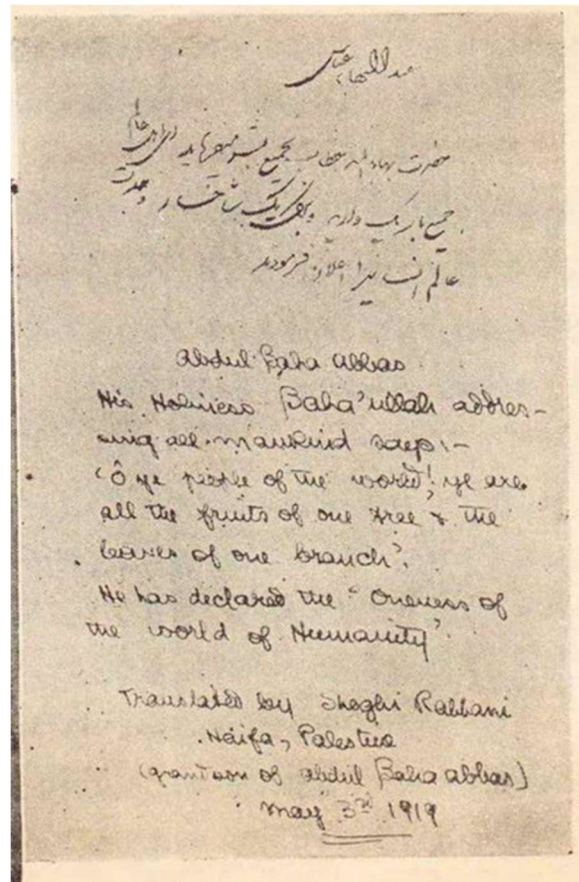 عبدالبهاء عباس
حضرت بهاءالله خطاب بجمیع بشر میفرماید ای اهل عالم
جمیع بار یک دارید و برگ یک شاخسار وحدت
عالم انسانیرا اعلان فرمودند
Abdul Baha Abbas
His Holiness Baha'ullah addres-
sing all mankind says:-
'O ye people of the world! ye are
all the fruits of one tree & the
leaves of one branch'.
He has declared the "Oneness of
the world of Humanity".
Translated by Shoghi Rabbani
Haifa, Palestine
(grantson of abdul Baha abbas)
May 3rd 1919